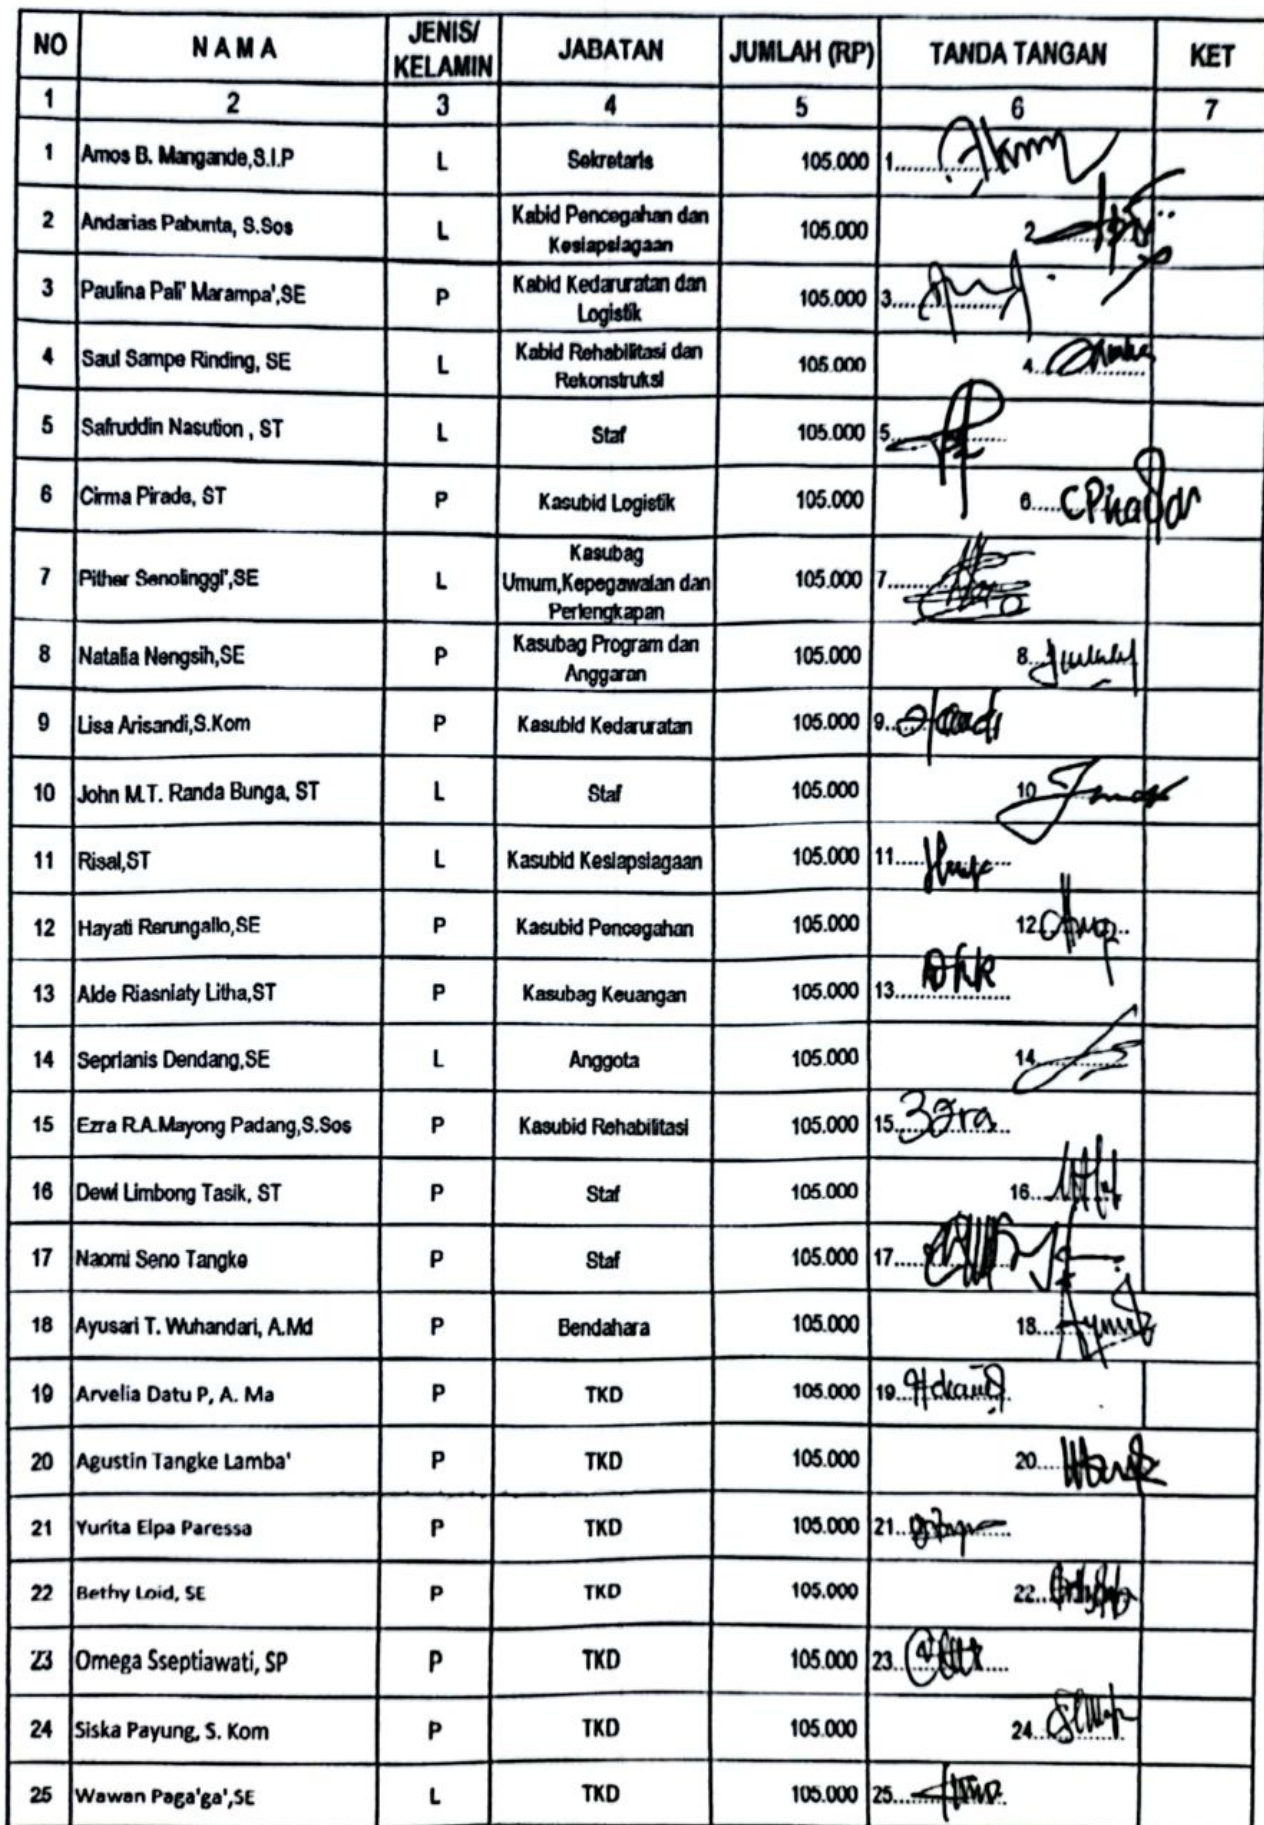 NO NAMA JENIS/ KELAMIN JABATAN JUMLAH (RP) TANDA TANGAN KET
1 2 3 4 5 6 7
1 Amos B. Mangande,S.I.P L Sekretaris 105.000 1
2 Andarias Pabunta, S.Sos L Kabid Pencegahan dan Kesiapsiagaan 105.000 2
3 Paulina Pali' Marampa',SE P Kabid Kedaruratan dan Logistik 105.000 3
4 Saul Sampe Rinding, SE L Kabid Rehabilitasi dan Rekonstruksi 105.000 4
5 Safruddin Nasution , ST L Staf 105.000 5
6 Cirma Pirade, ST P Kasubid Logistik 105.000 6
7 Pither Senolinggi',SE L Kasubag Umum,Kepegawaian dan Perlengkapan 105.000 7
8 Natalia Nengsih,SE P Kasubag Program dan Anggaran 105.000 8
9 Lisa Arisandi,S.Kom P Kasubid Kedaruratan 105.000 9
10 John M.T. Randa Bunga, ST L Staf 105.000 10
11 Risal,ST L Kasubid Kesiapsiagaan 105.000 11
12 Hayati Rerungallo,SE P Kasubid Pencegahan 105.000 12
13 Alde Riasniaty Litha,ST P Kasubag Keuangan 105.000 13
14 Seprianis Dendang,SE L Anggota 105.000 14
15 Ezra R.A.Mayong Padang,S.Sos P Kasubid Rehabilitasi 105.000 15
16 Dewi Limbong Tasik, ST P Staf 105.000 16
17 Naomi Seno Tangke P Staf 105.000 17
18 Ayusari T. Wuhandari, A.Md P Bendahara 105.000 18
19 Arvelia Datu P, A. Ma P TKD 105.000 19
20 Agustin Tangke Lamba' P TKD 105.000 20
21 Yurita Elpa Paressa P TKD 105.000 21
22 Bethy Loid, SE P TKD 105.000 22
23 Omega Sseptiawati, SP P TKD 105.000 23
24 Siska Payung, S. Kom P TKD 105.000 24
25 Wawan Paga'ga',SE L TKD 105.000 25